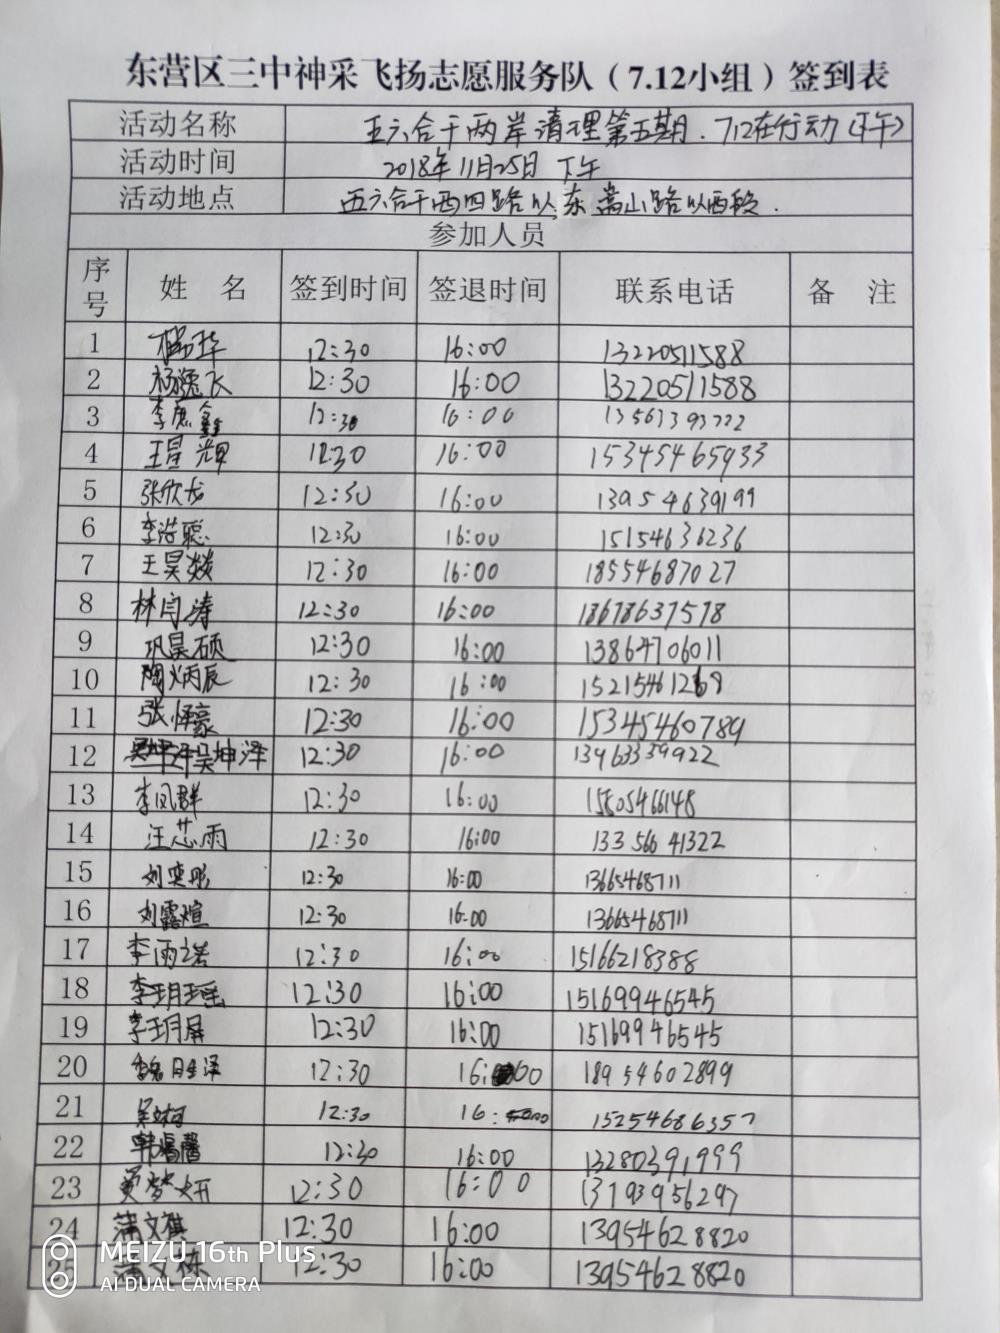 东营区三中神采飞扬志愿服务队（7.12小组）签到表
活动名称 五六合干两岸清理第五期.712在行动(下午)
活动时间 2018年11月25日 下午
活动地点 五六合干西四路以东嵩山路以西段.
参加人员
序号 姓 名 签到时间 签退时间 联系电话 备 注
1 杨华 12:30 16:00 13220511588
2 杨逸飞 12:30 16:00 13220511588
3 李鑫 12:30 16:00 13561393222
4 王星辉 12:30 16:00 15345465933
5 张欣龙 12:30 16:00 13954639199
6 李浩聪 12:30 16:00 15154636236
7 王昊燚 12:30 16:00 18554687027
8 林闫涛 12:30 16:00 18678637578
9 巩昊硕 12:30 16:00 13864706011
10 陶炳辰 12:30 16:00 15215461269
11 张怿豪 12:30 16:00 15345460789
12 吴坤泽 12:30 16:00 13963339922
13 李凤群 12:30 16:00 15805466148
14 汪芯雨 12:30 16:00 13356641322
15 刘奕彤 12:30 16:00 13665468711
16 刘露煊 12:30 16:00 13665468711
17 李雨诺 12:30 16:00 15166218388
18 李玥瑶 12:30 16:00 15169946545
19 李玥屏 12:30 16:00 15169946545
20 12:30 16:00 18954602899
21 12:30 16:00 15254686357
22 韩馨 12:30 16:00 13280391999
23 黄梦妍 12:30 16:00 13193956297
24 蒲文祺 12:30 16:00 13954628820
25 蒲文栋 12:30 16:00 13954628820
MEIZU 16th Plus
AI DUAL CAMERA